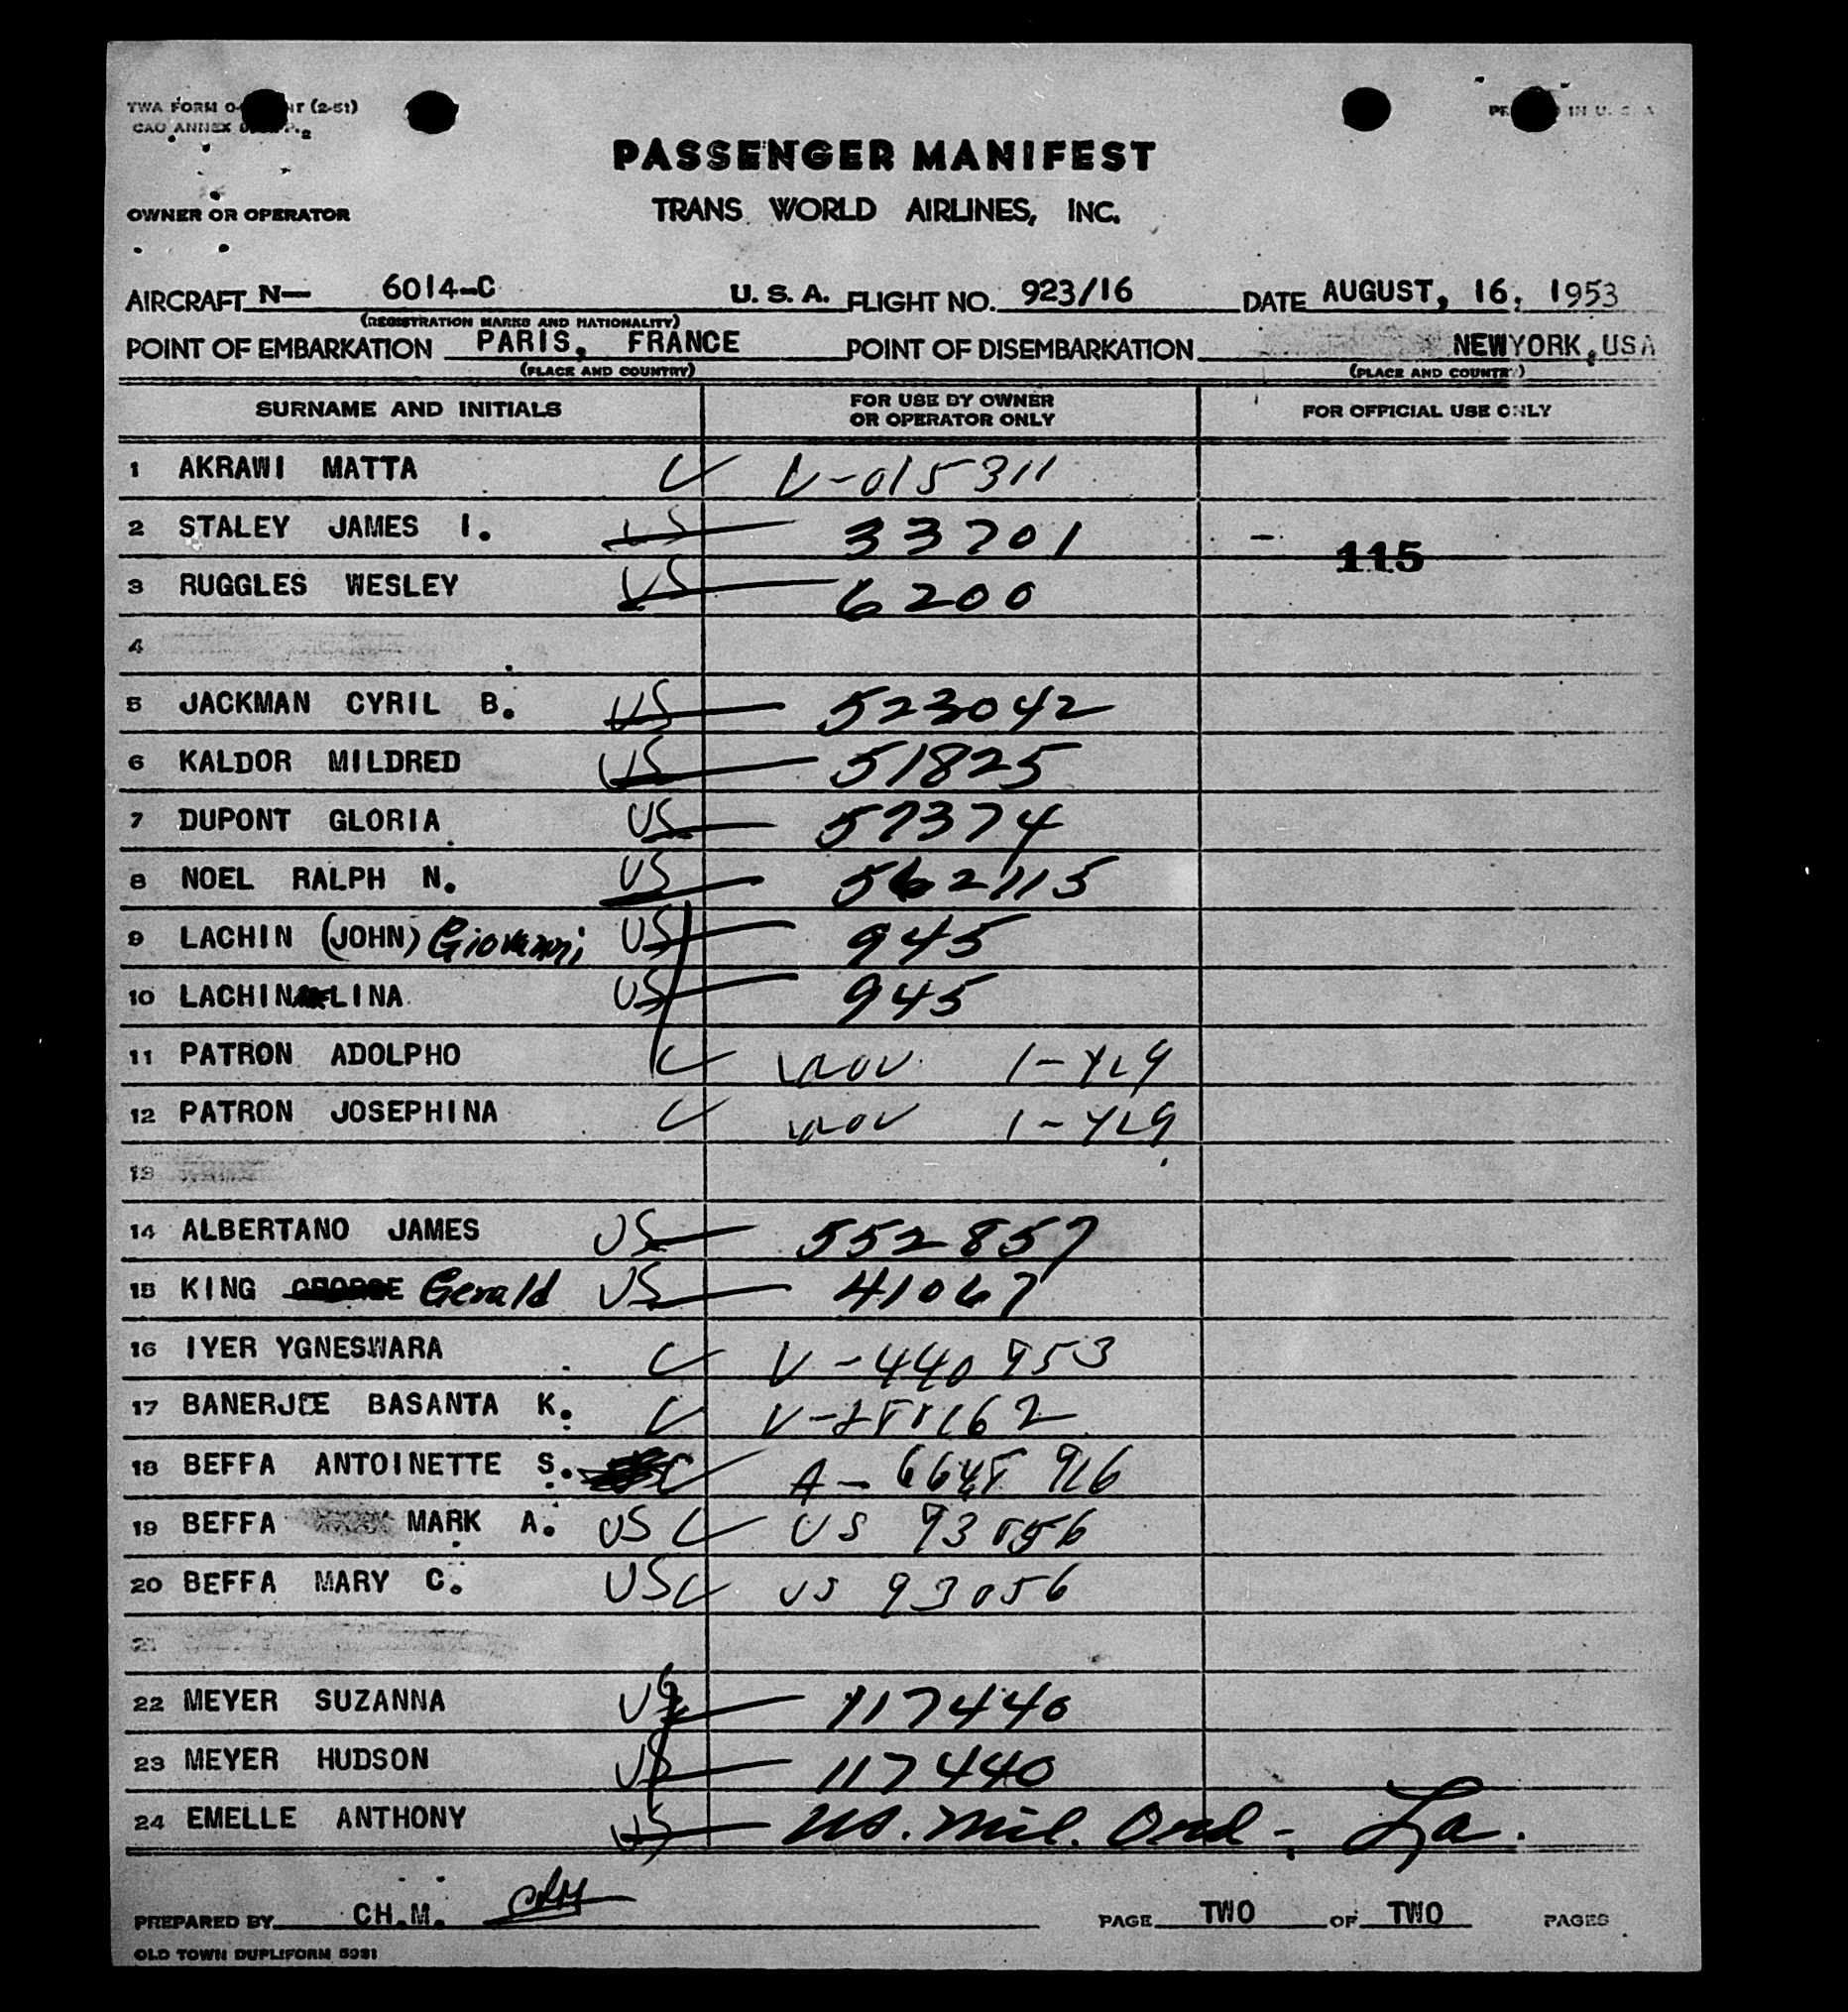 TWA FORM O- NT (2-51)
CAO ANNEX P.2
PR IN U. S. A
PASSENGER MANIFEST
OWNER OR OPERATOR TRANS WORLD AIRLINES, INC.
AIRCRAFT N— 6014-C U. S. A. FLIGHT NO. 923/16 DATE AUGUST, 16, 1953
(REGISTRATION MARKS AND NATIONALITY)
POINT OF EMBARKATION PARIS, FRANCE POINT OF DISEMBARKATION NEWYORK, USA
(PLACE AND COUNTRY) (PLACE AND COUNTRY)
SURNAME AND INITIALS FOR USE BY OWNER OR OPERATOR ONLY FOR OFFICIAL USE ONLY
1 AKRAWI MATTA V-015311
2 STALEY JAMES I. US 33701 - 115
3 RUGGLES WESLEY US 6200
4
5 JACKMAN CYRIL B. US 523042
6 KALDOR MILDRED US 51825
7 DUPONT GLORIA US 57374
8 NOEL RALPH N. US 562115
9 LACHIN (JOHN) Giovanni US 945
10 LACHIN LINA US 945
11 PATRON ADOLPHO
12 PATRON JOSEPHINA
13
14 ALBERTANO JAMES US 552857
15 KING GEORGE Gerald US 41067
16 IYER YGNESWARA V-440953
17 BANERJEE BASANTA K.
18 BEFFA ANTOINETTE S.
19 BEFFA MARK A. US US 93056
20 BEFFA MARY C. US US 93056
21
22 MEYER SUZANNA US 117440
23 MEYER HUDSON US 117440
24 EMELLE ANTHONY US US. Mil. Ord - La.
PREPARED BY CH.M. PAGE TWO OF TWO PAGES
OLD TOWN DUPLIFORM 5931